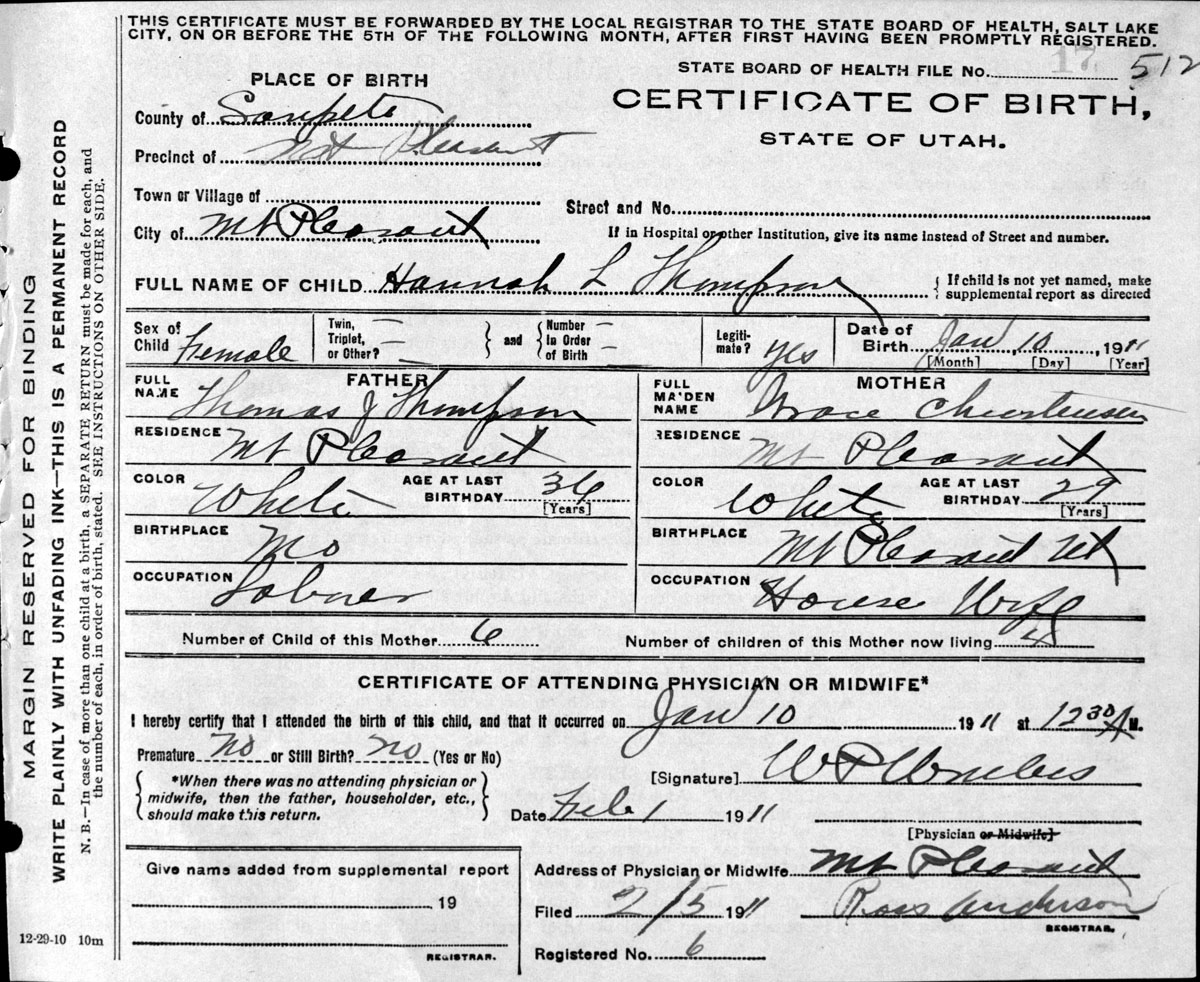 THIS CERTIFICATE MUST BE FORWARDED BY THE LOCAL REGISTRAR TO THE STATE BOARD OF HEALTH, SALT LAKE
CITY, ON OR BEFORE THE 5TH OF THE FOLLOWING MONTH, AFTER FIRST HAVING BEEN PROMPTLY REGISTERED.
STATE BOARD OF HEALTH FILE No. 17 512
PLACE OF BIRTH
CERTIFICATE OF BIRTH,
STATE OF UTAH.
County of Sanpete
Precinct of Mt Pleasant
Town or Village of
Street and No.
City of Mt Pleasant
If in Hospital or other Institution, give its name instead of Street and number.
FULL NAME OF CHILD Hannah L Thompson { If child is not yet named, make
supplemental report as directed
Sex of Child Female
Twin, Triplet, or Other? — } and { Number In Order of Birth —
Legiti-mate? yes
Date of Birth Jan 10, 1911
[Month] [Day] [Year]
FATHER
FULL NAME Thomas J Thompson
RESIDENCE Mt Pleasant
COLOR White AGE AT LAST BIRTHDAY 36
[Years]
BIRTHPLACE Mo
OCCUPATION Laborer
MOTHER
FULL MAIDEN NAME Grace Christensen
RESIDENCE Mt Pleasant
COLOR White AGE AT LAST BIRTHDAY 29
[Years]
BIRTHPLACE Mt Pleasant Ut
OCCUPATION House Wife
Number of Child of this Mother 6 Number of children of this Mother now living 4
CERTIFICATE OF ATTENDING PHYSICIAN OR MIDWIFE*
I hereby certify that I attended the birth of this child, and that it occurred on Jan 10 1911 at 12 30 A M.
Premature No or Still Birth? No (Yes or No)
*When there was no attending physician or
midwife, then the father, householder, etc.,
should make this return.
[Signature] W P
Date Feb 1 1911
[Physician or Midwife]
Give name added from supplemental report
19
REGISTRAR.
Address of Physician or Midwife Mt Pleasant
Filed 2/5 1911 Ross Anderson
REGISTRAR.
Registered No. 6
12-29-10 10m
MARGIN RESERVED FOR BINDING
WRITE PLAINLY WITH UNFADING INK—THIS IS A PERMANENT RECORD
N. B.—In case of more than one child at a birth, a SEPARATE RETURN must be made for each, and
the number of each, in order of birth, stated. SEE INSTRUCTIONS ON OTHER SIDE.